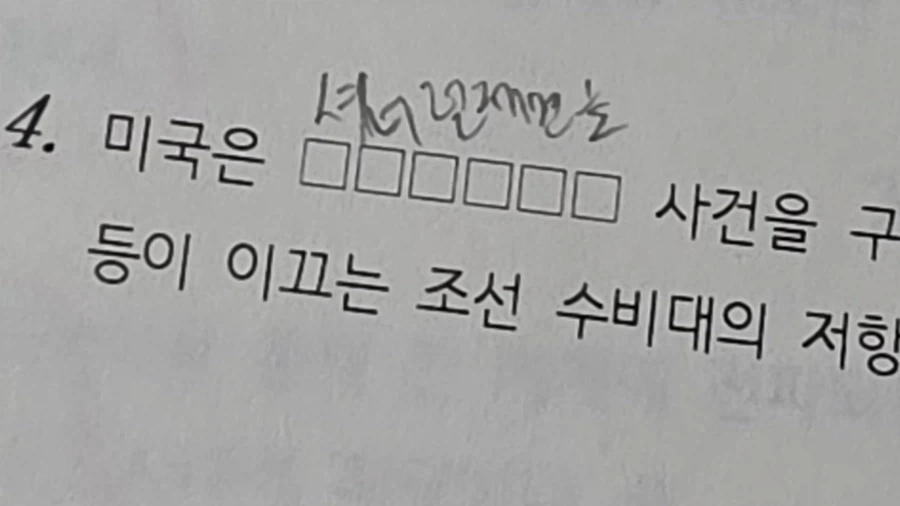 4. 미국은 □□□□□□ 사건을 구
등이 이끄는 조선 수비대의 저항